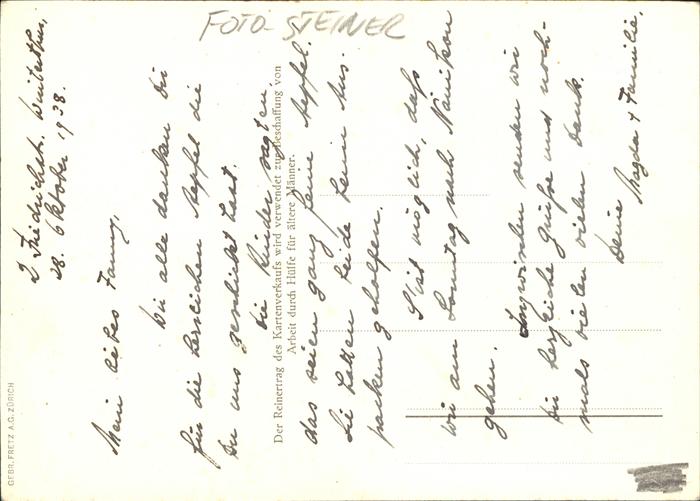 FOTO-STEINER
2 Friedrichstr. Winterthur,
28. Oktober 1938.
Mein liebes Fanny,
Wir alle danken Dir
für die herrlichen Aepfel die
Du uns geschickt hast.
Die Kinder sagten
das seien ganz feine Aepfel.
Sie hätten beide beim Aus-
packen geholfen.
S'ist möglich, dass
wir am Sonntag nach Nänikon
gehen.
Inzwischen senden wir
Dir herzliche Grüsse und noch-
mals vielen vielen Dank.
Deine Magda + Familie.
Der Reinertrag des Kartenverkaufs wird verwendet zur Beschaffung von
Arbeit durch Hülfe für ältere Männer.
GEBR. FRETZ A.G. ZÜRICH